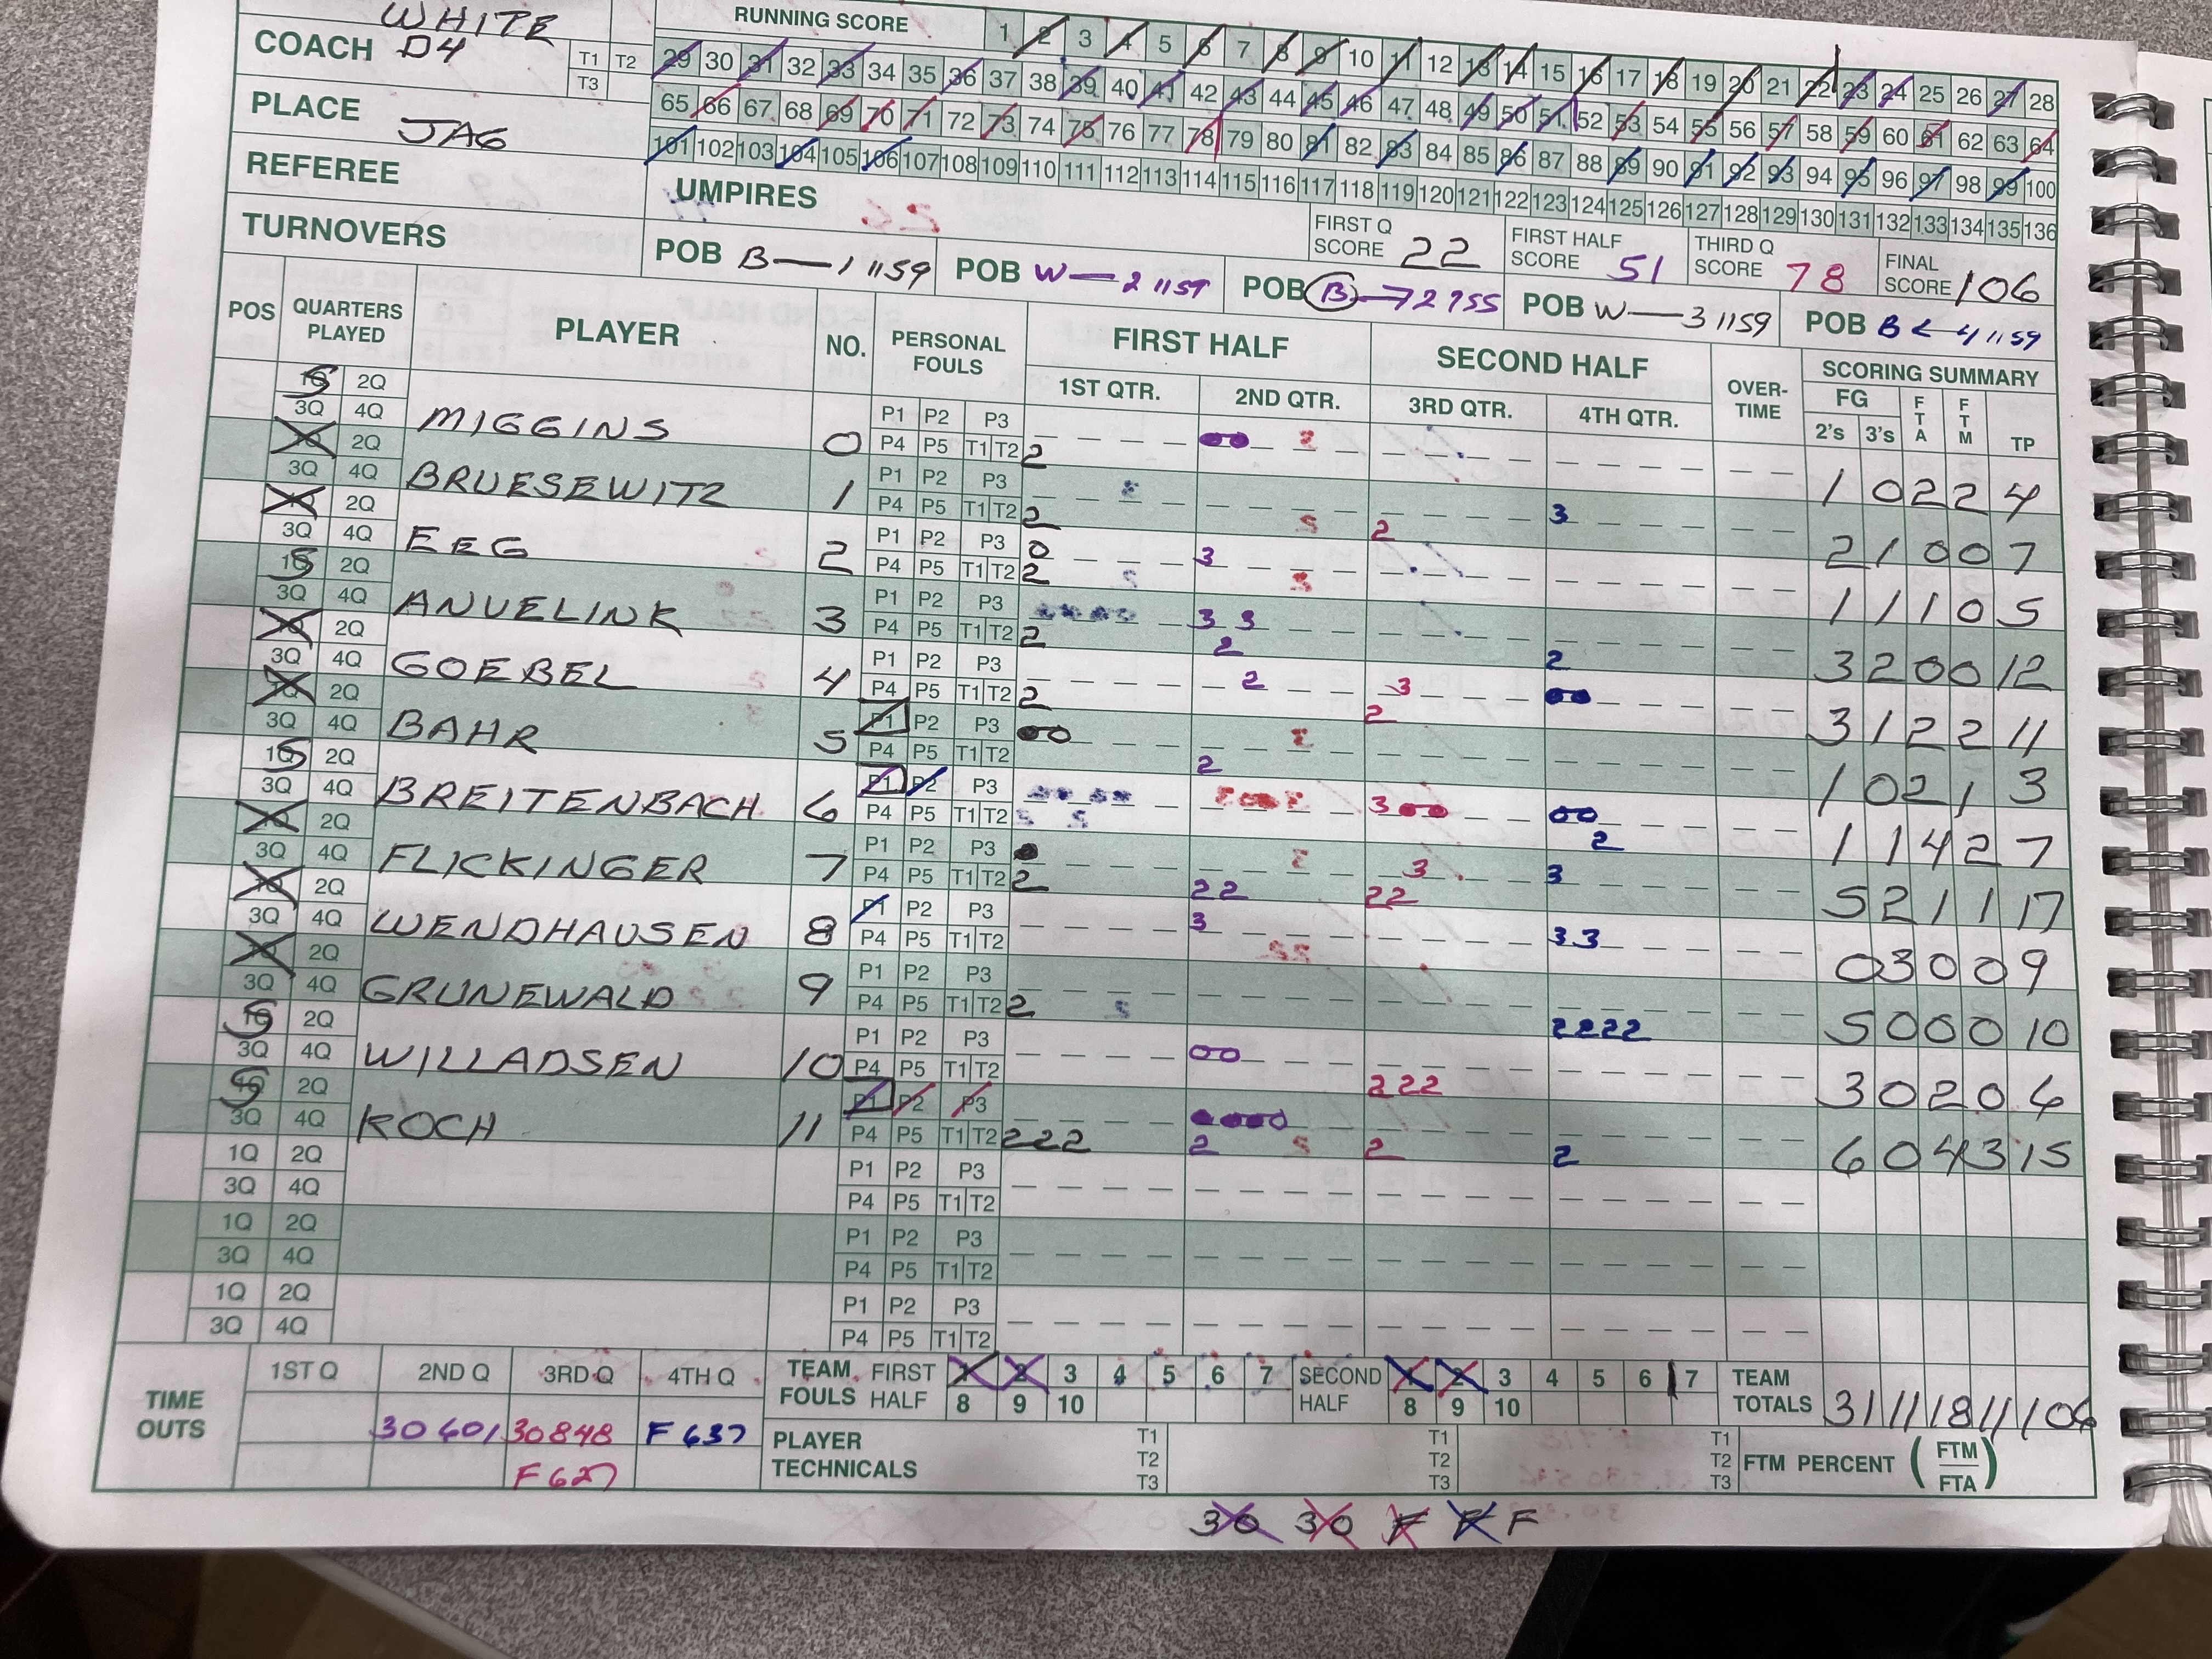 WHITE
COACH D4
T1 T2
T3
PLACE JAG
REFEREE
UMPIRES
TURNOVERS
RUNNING SCORE 1 2 3 4 5 6 7 8 9 10 11 12 13 14 15 16 17 18 19 20 21 22 23 24 25 26 27 28
29 30 31 32 33 34 35 36 37 38 39 40 41 42 43 44 45 46 47 48 49 50 51 52 53 54 55 56 57 58 59 60 61 62 63 64
65 66 67 68 69 70 71 72 73 74 75 76 77 78 79 80 81 82 83 84 85 86 87 88 89 90 91 92 93 94 95 96 97 98 99 100
101 102 103 104 105 106 107 108 109 110 111 112 113 114 115 116 117 118 119 120 121 122 123 124 125 126 127 128 129 130 131 132 133 134 135 136
FIRST Q SCORE 22
FIRST HALF SCORE 51
THIRD Q SCORE 78
FINAL SCORE 106
POB B—1 1159
POB W—2 1159
POB B→2 755
POB W—3 1159
POB B←4 1159
POS QUARTERS PLAYED PLAYER NO. PERSONAL FOULS FIRST HALF SECOND HALF OVER-TIME SCORING SUMMARY
1ST QTR. 2ND QTR. 3RD QTR. 4TH QTR. FG 2's 3's FTA FTM TP
MIGGINS 0 P1 P2 P3 P4 P5 T1 T2 2 00 1 0 2 2 4
BRUESEWITZ 1 P1 P2 P3 P4 P5 T1 T2 2 2 3 2 1 0 0 7
EEG 2 P1 P2 P3 P4 P5 T1 T2 0 2 3 1 1 1 0 5
ANUELINK 3 P1 P2 P3 P4 P5 T1 T2 2 3 3 2 2 3 2 0 0 12
GOEBEL 4 P1 P2 P3 P4 P5 T1 T2 2 2 3 2 00 3 1 2 2 11
BAHR 5 P1 P2 P3 P4 P5 T1 T2 00 2 1 0 2 1 3
BREITENBACH 6 P1 P2 P3 P4 P5 T1 T2 3 00 00 2 1 1 4 2 7
FLICKINGER 7 P1 P2 P3 P4 P5 T1 T2 2 2 2 3 2 2 3 5 2 1 1 17
WENDHAUSEN 8 P1 P2 P3 P4 P5 T1 T2 3 3 3 0 3 0 0 9
GRUNEWALD 9 P1 P2 P3 P4 P5 T1 T2 2 2 2 2 2 5 0 0 0 10
WILLADSEN 10 P1 P2 P3 P4 P5 T1 T2 00 2 2 2 3 0 2 0 6
KOCH 11 P1 P2 P3 P4 P5 T1 T2 2 2 2 0000 2 2 2 6 0 4 3 15
1Q 2Q P1 P2 P3
3Q 4Q P4 P5 T1 T2
1Q 2Q P1 P2 P3
3Q 4Q P4 P5 T1 T2
1Q 2Q P1 P2 P3
3Q 4Q P4 P5 T1 T2
TIME OUTS 1ST Q 2ND Q 3RD Q 4TH Q
30 601 30 848 F 637
F 627
TEAM FOULS FIRST HALF 1 2 3 4 5 6 7 8 9 10
SECOND HALF 1 2 3 4 5 6 7 8 9 10
TEAM TOTALS 31 11 18 11 106
PLAYER TECHNICALS T1 T2 T3 T1 T2 T3 T1 T2 T3
FTM PERCENT (FTM/FTA)
30 30 F F F